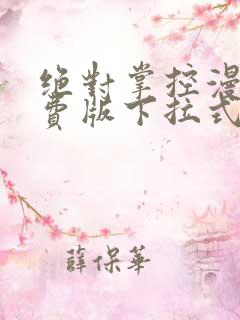 絕對掌控漫
費版下拉式
薛保華